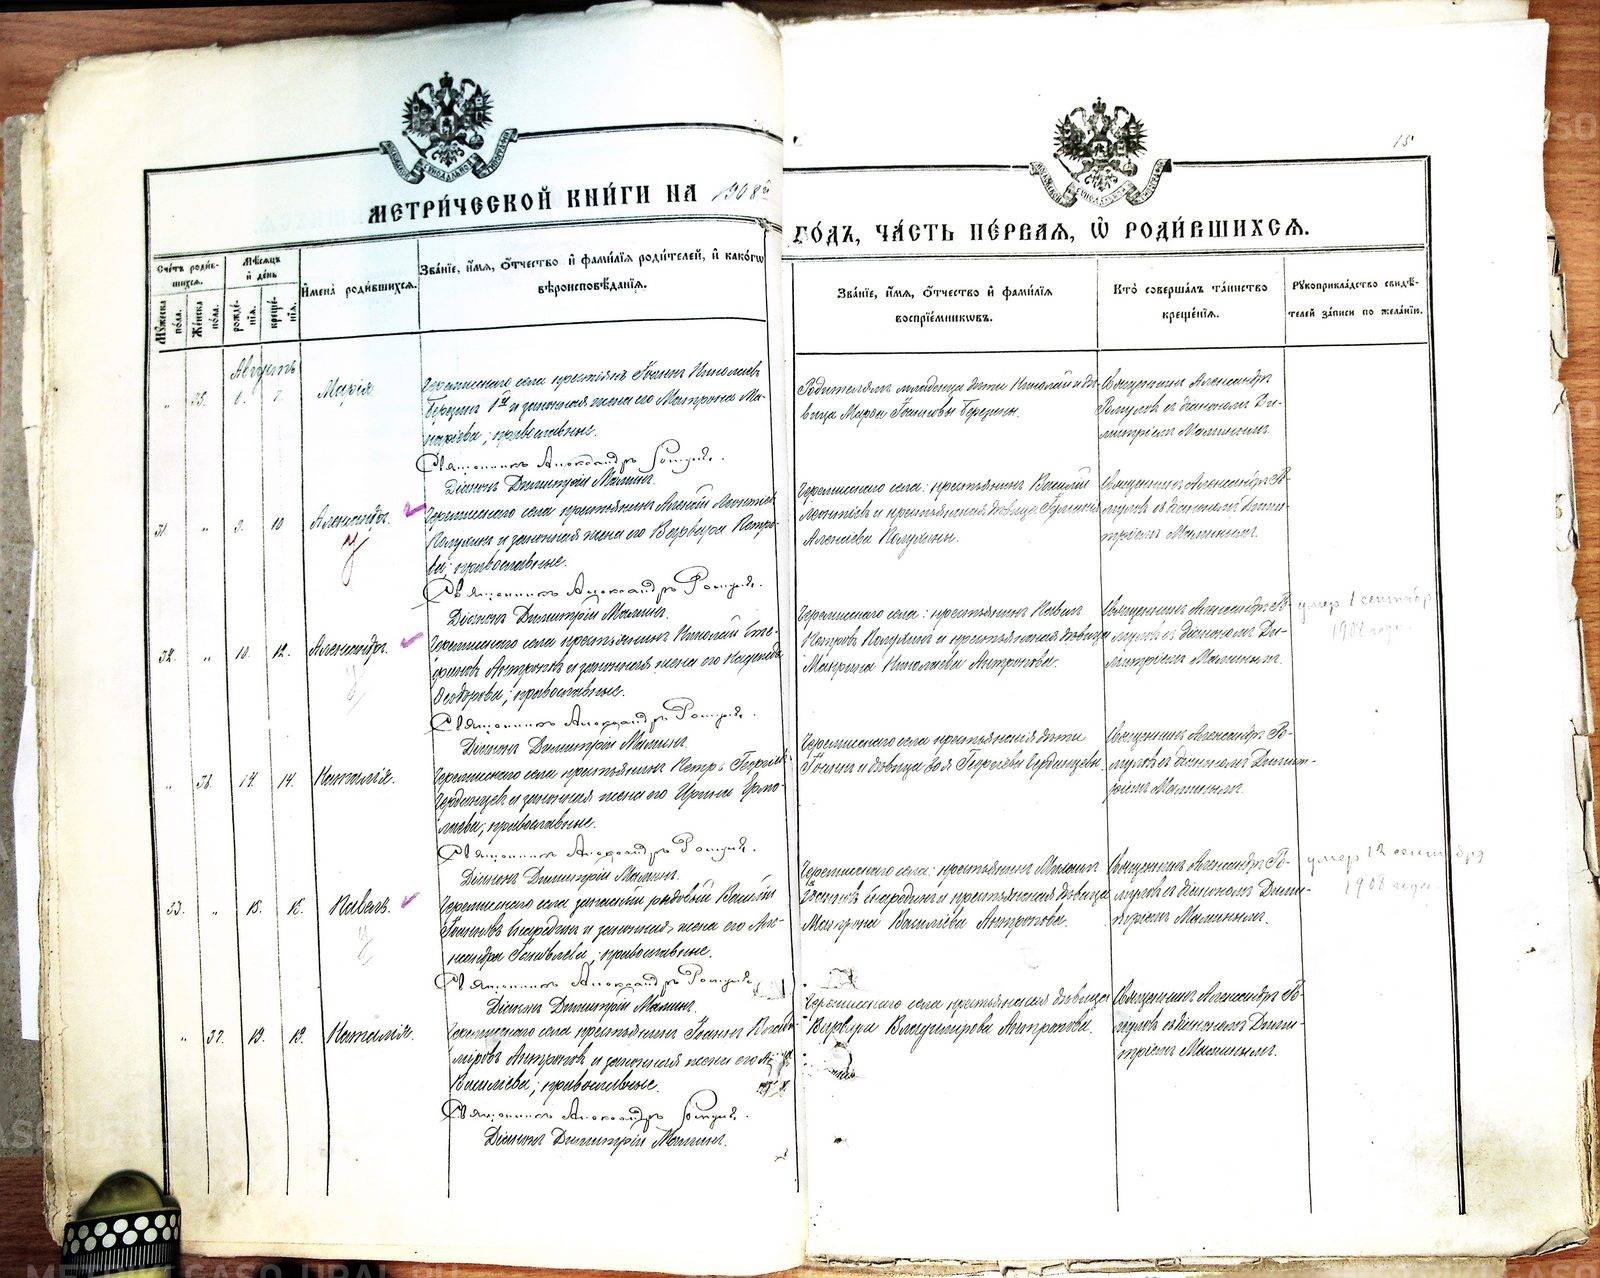 15
МЕТРИ́ЧЕСКОЙ КНИ́ГИ НА 1908й
ГО́ДЪ, ЧА́СТЬ ПЕ́РВАЯ, Ѡ҆ РОДИ́ВШИХСЯ.
Сче́тъ роди́вшихся.
Му́жеска по́ла.
Же́нска по́ла.
Мѣ́сяцъ и҆ де́нь
рожде́нія.
креще́нія.
И҆мена̀ роди́вшихся.
Зва́ніе, и҆́мя, ѻ҆́тчество и҆ фами́лія роди́телей, и҆ како́гѡ
вѣроисповѣ́данія.
Зва́ніе, и҆́мя, ѻ҆́тчество и҆ фами́лія
воспріе́мникѡвъ.
Кто̀ соверша́лъ та́инство
креще́нія.
Рꙋкоприкла́дство свидѣ́-
телей за́писи по жела́нію.
Августъ
" 35. 6. 7. Марія
Черемисскаго села крестьянинъ Іоаннъ Николаевъ
Березинъ 1й и законная жена его Матрона Ма-
каріева; православные.
Священникъ Александръ
Діаконъ Димитрій Малининъ.
Родителямъ младенца дѣти Николай и дѣ-
вица Марѳа Іоанновы Березины.
Священникъ Александръ
съ діакономъ Ди-
митріемъ Малининымъ.
31. " 9. 10 Александръ.
Черемисскаго села крестьянинъ Алексій Леонтіев
и законная жена его Варвара Петро-
ва; православные.
Священникъ Александръ
Діаконъ Димитрій Малининъ.
Черемисскаго села: крестьянинъ Василій
Леонтіевъ и крестьянская дѣвица
Алексіева
Священникъ Александръ
съ діакономъ Дими-
тріемъ Малининымъ.
32. " 10. 12. Александръ.
Черемисскаго села крестьянинъ Николай Сте-
фановъ Антроповъ и законная жена его Надежда
Ѳеодорова; православные.
Священникъ Александръ
Діаконъ Димитрій Малининъ.
Черемисскаго села: крестьянинъ Павелъ
Петровъ и крестьянская дѣвица
Николаева Антропова.
Священникъ Александръ
съ діакономъ Ди-
митріемъ Малининымъ.
умер 1 сентября
1908 года.
" 36. 14. 14. Наталія.
Черемисскаго села крестьянинъ Петръ Георгіевъ
и законная жена его Ирина Ермо-
лаева; православные.
Священникъ Александръ
Діаконъ Димитрій Малининъ.
Черемисскаго села крестьянскія дѣти
Іоаннъ и дѣвица Зоя Георгіевы
Священникъ Александръ
съ діакономъ Димит-
ріемъ Малининымъ.
33. " 15. 16. Павелъ.
Черемисскаго села запасный рядовой Василій
Іоанновъ и законная жена его Алек-
сандра; православные.
Священникъ Александръ
Діаконъ Димитрій Малининъ.
Черемисскаго села: крестьянинъ
и крестьянская дѣвица
Матрона Василіева Антропова.
Священникъ Александръ
съ діакономъ Дими-
тріемъ Малининымъ.
умер 12 сентября
1908 года.
" 37. 19. 19. Наталія.
Черемисскаго села крестьянинъ Іоаннъ Влади-
міровъ Антроповъ и законная жена его
Василіева; православные.
Священникъ Александръ
Діаконъ Димитрій Малининъ.
Черемисскаго села крестьянская дѣвица
Варвара Владимірова Антропова.
Священникъ Александръ
съ діакономъ Дими-
тріемъ Малининымъ.